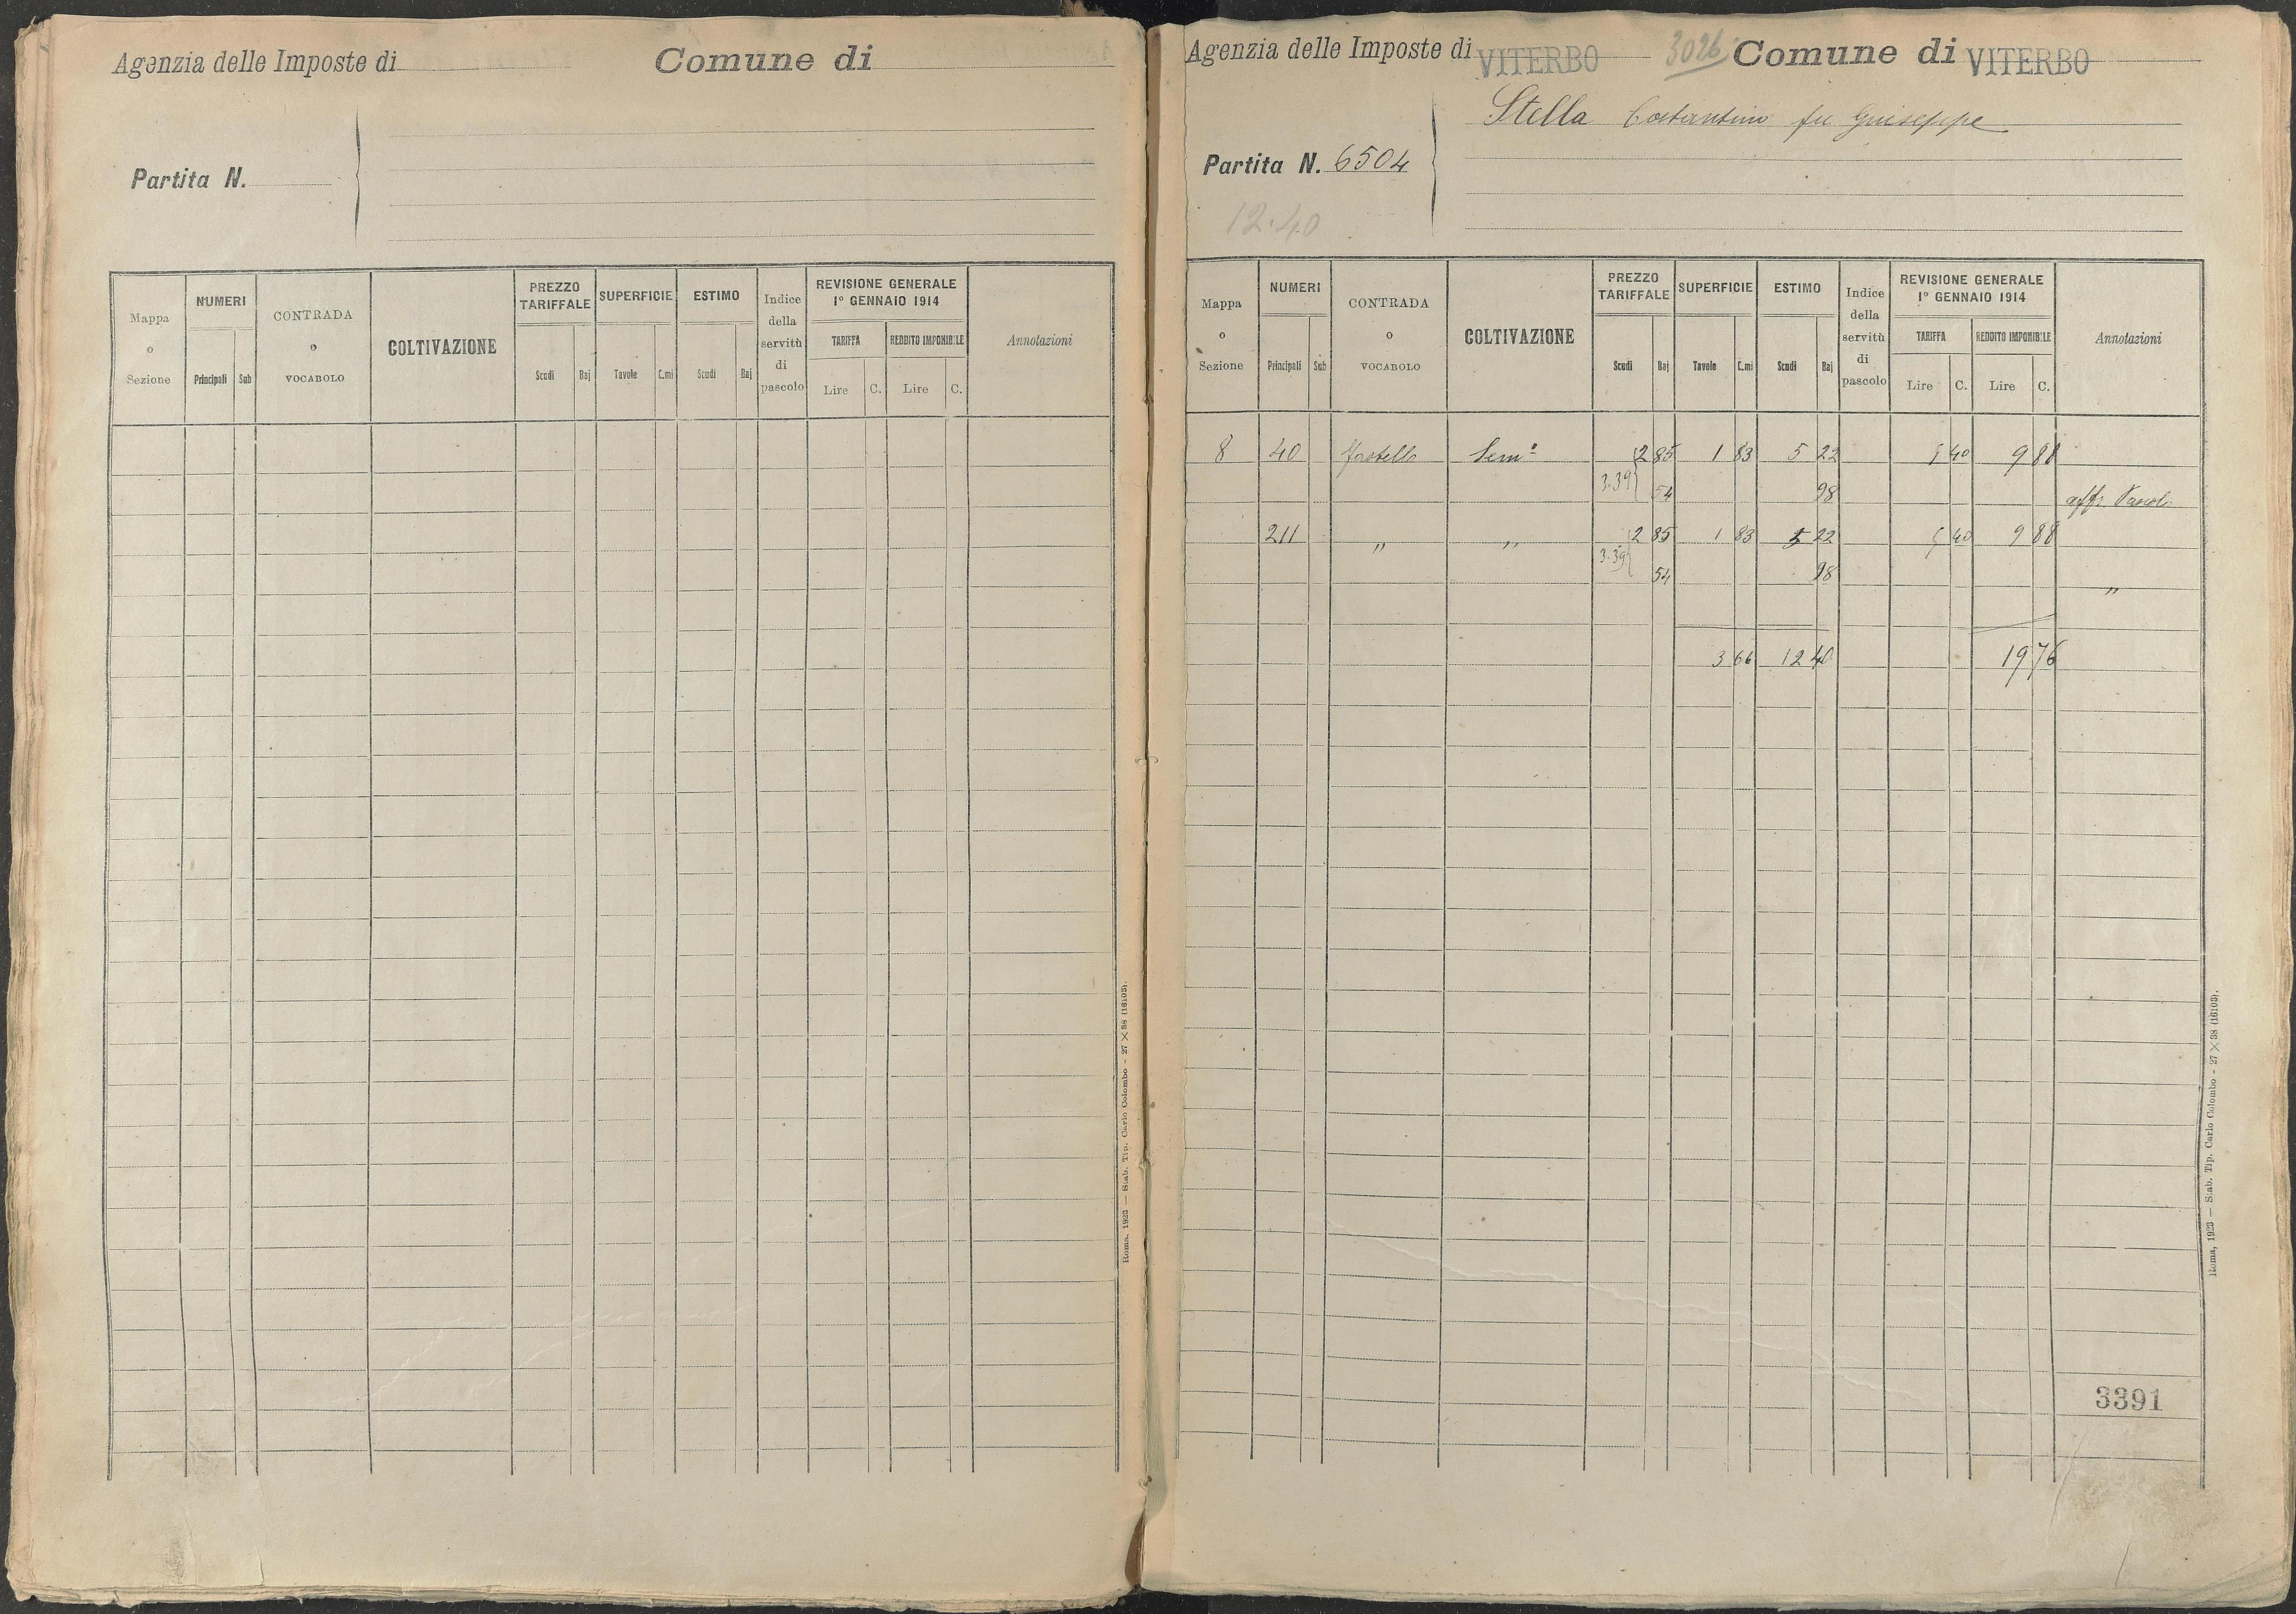 Agenzia delle Imposte di Comune di
Partita N.
Mappa o Sezione NUMERI Principali Sub CONTRADA o VOCABOLO COLTIVAZIONE PREZZO TARIFFALE Scudi Baj SUPERFICIE Tavole C.mi ESTIMO Scudi Baj Indice della servitù di pascolo REVISIONE GENERALE 1° GENNAIO 1914 TARIFFA Lire C. REDDITO IMPONIBILE Lire C. Annotazioni
Roma, 1923 — Stab. Tip. Carlo Colombo - 27 × 38 (16103).
Agenzia delle Imposte di VITERBO 3026 Comune di VITERBO
Stella Costantino fu Giuseppe
Partita N. 6504
12.40
Mappa o Sezione NUMERI Principali Sub CONTRADA o VOCABOLO COLTIVAZIONE PREZZO TARIFFALE Scudi Baj SUPERFICIE Tavole C.mi ESTIMO Scudi Baj Indice della servitù di pascolo REVISIONE GENERALE 1° GENNAIO 1914 TARIFFA Lire C. REDDITO IMPONIBILE Lire C. Annotazioni
8 40 Semº 2 85 1 83 5 22 5 40 9 88
3.39 54 98 affr
211 " " 2 85 1 83 5 22 5 40 9 88
3.39 54 98 "
3 66 12 40 19 76
3391
Roma, 1923 — Stab. Tip. Carlo Colombo - 27 × 38 (16103).